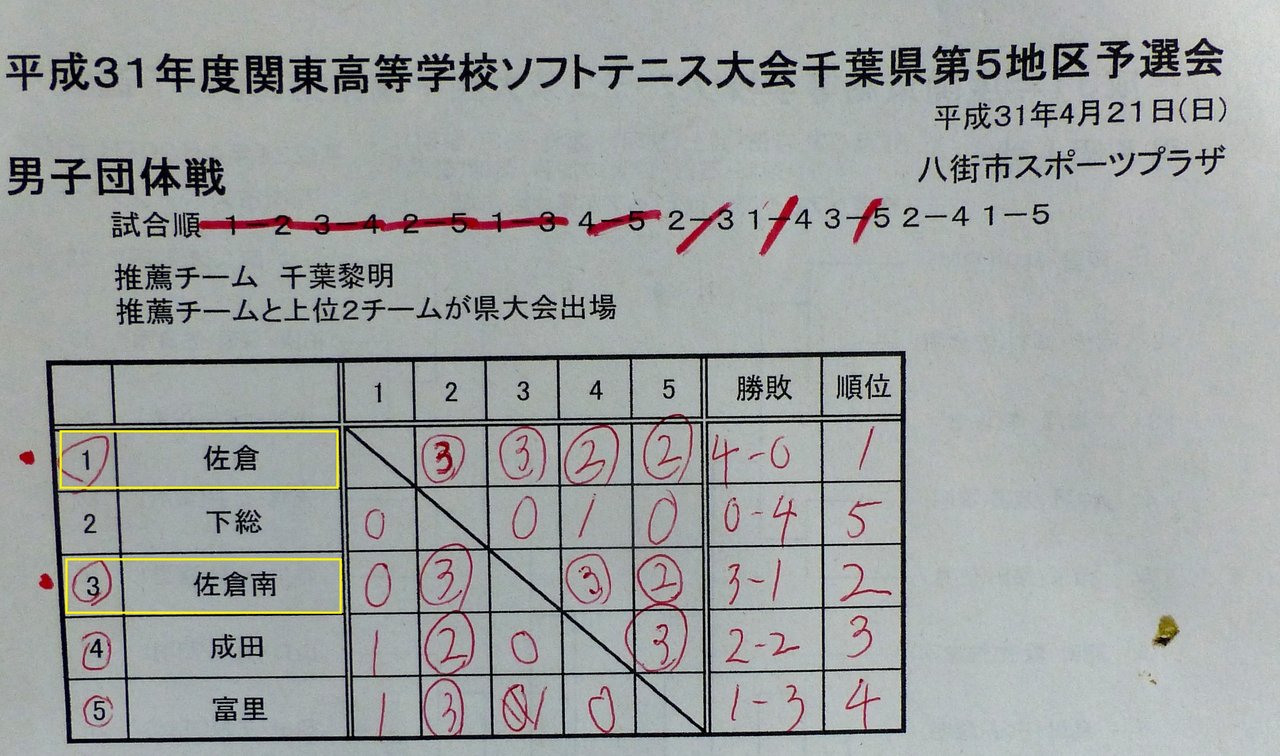 平成31年度関東高等学校ソフトテニス大会千葉県第5地区予選会
平成31年4月21日(日)
男子団体戦
八街市スポーツプラザ
試合順 1-2 3-4 2-5 1-3 4-5 2-3 1-4 3-5 2-4 1-5
推薦チーム 千葉黎明
推薦チームと上位2チームが県大会出場
1 2 3 4 5 勝敗 順位
1 佐倉 ③ ③ ② ② 4-0 1
2 下総 0 0 1 0 0-4 5
3 佐倉南 0 ③ ③ ② 3-1 2
4 成田 1 ② 0 ③ 2-2 3
5 富里 1 ③ 1 0 1-3 4